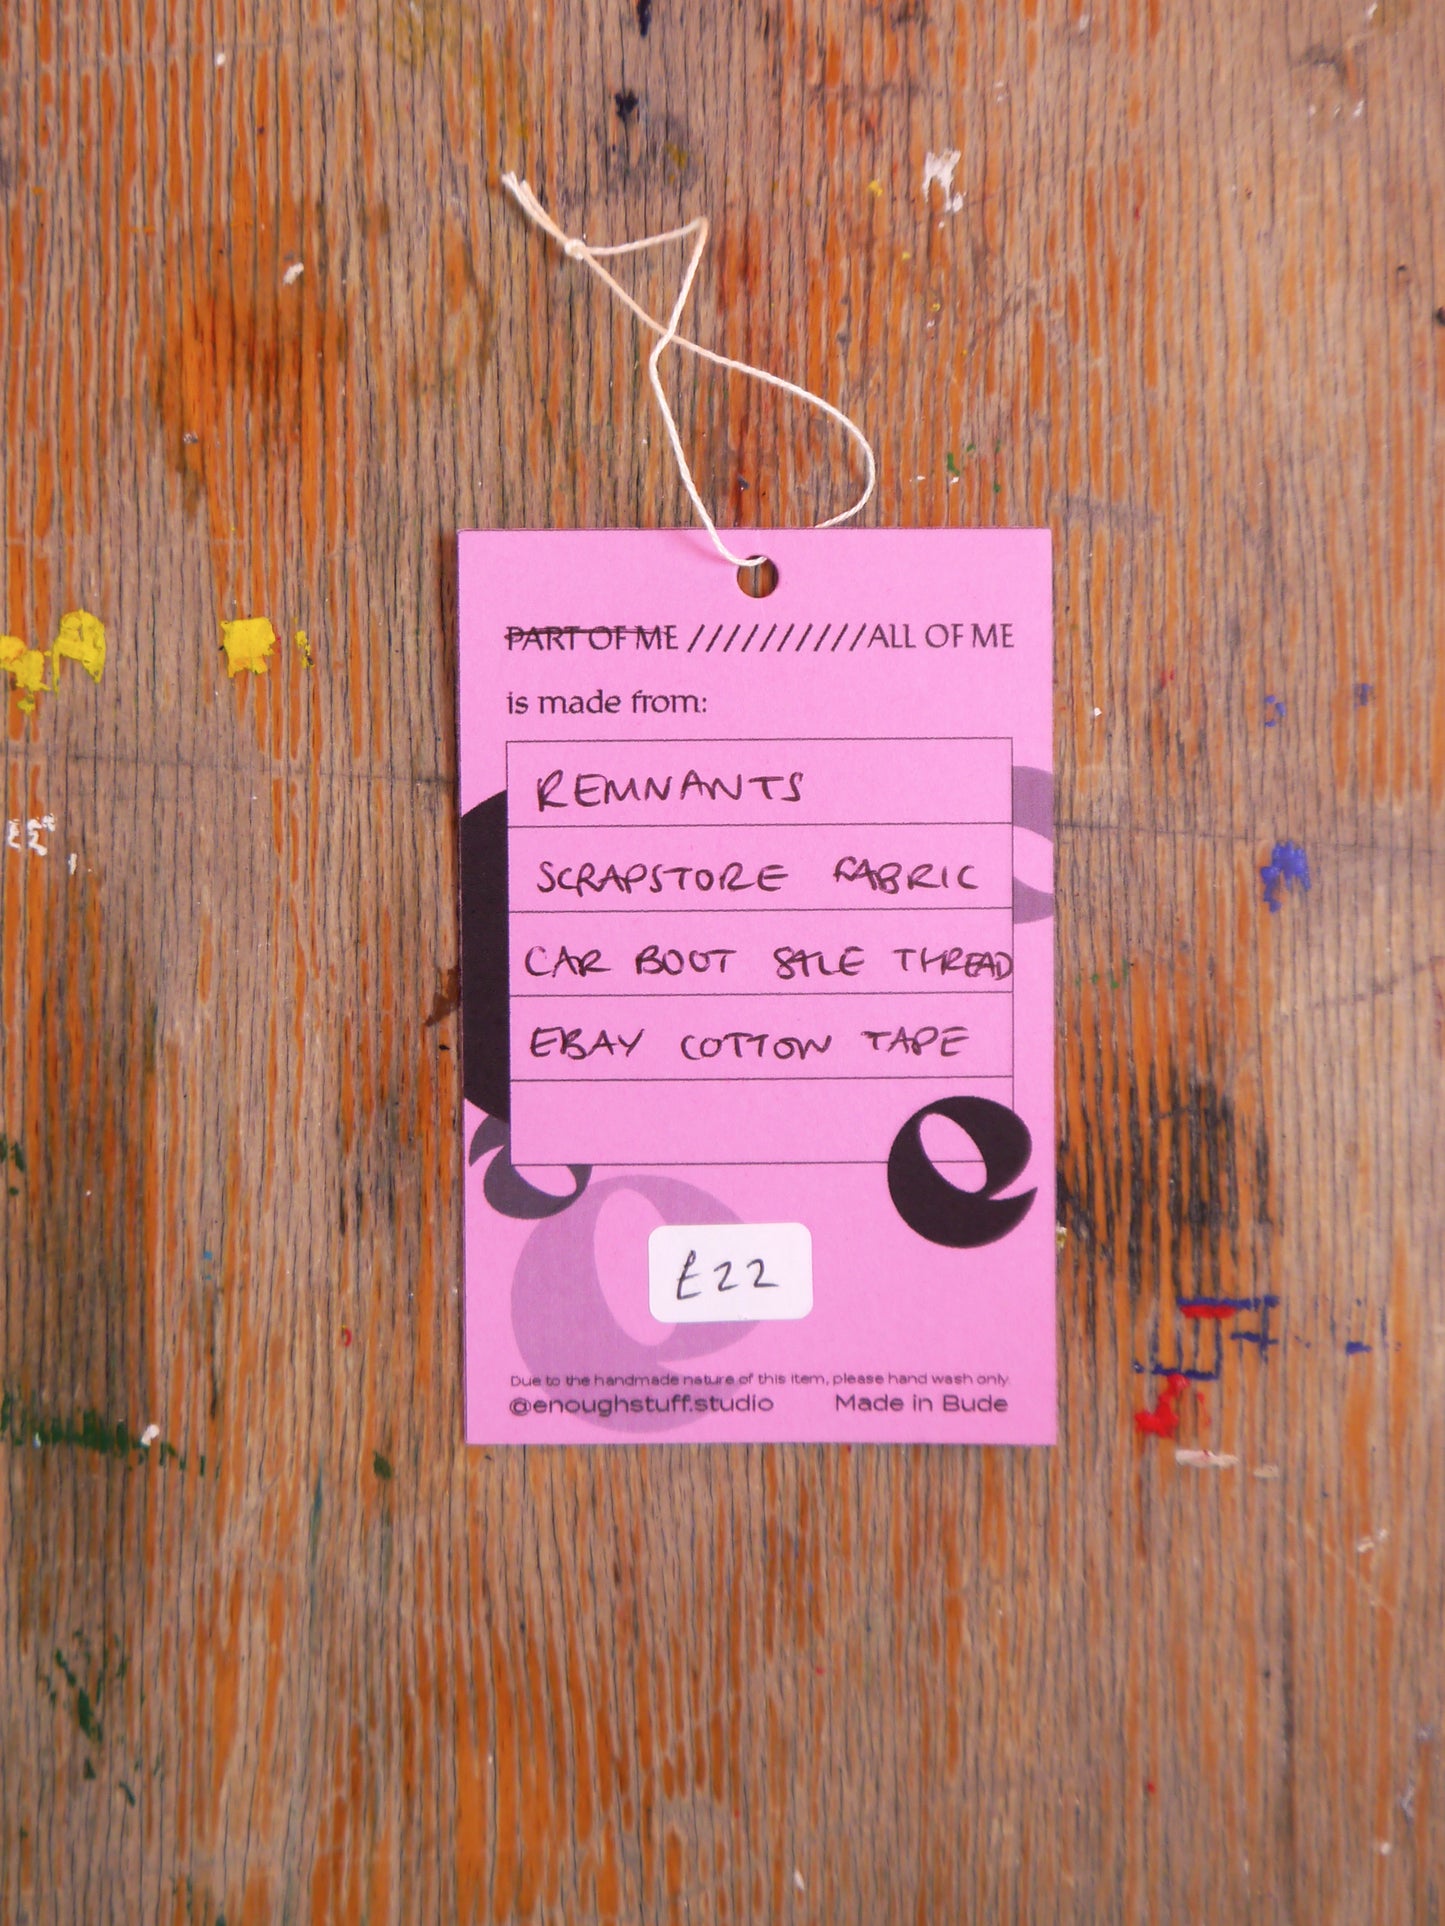 PART OF ME //////////ALL OF ME
is made from:
REMNANTS
SCRAPSTORE FABRIC
CAR BOOT SALE THREAD
EBAY COTTON TAPE
£22
Due to the handmade nature of this item, please hand wash only.
@enoughstuff.studio Made in Bude